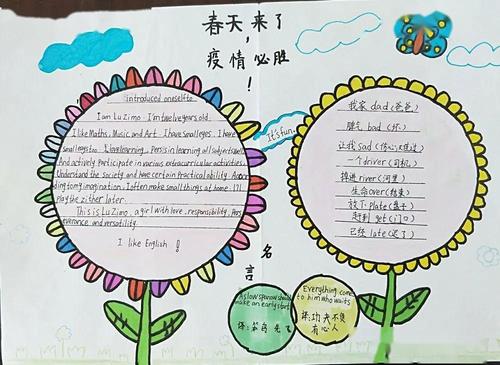 春天来了,
疫情必胜!
introduced oneselfto
I am Lu Zimo. I'm twelve years old.
I like Maths, Music and Art. I have small eyes. I have
small ears too. I love learning. Persis in learning all subjects well.
And actively participate in various extracurricular activities.
Understand the society and have certain Practical ability. Accor
ding to my imagination. I often make small things at home. I
Play the zither later.
This is Lu Zimo, a girl with love, responsibility, Pers
everance and versatility.
I like English!
It's fun.
我家 dad (爸爸)
脾气 bad (坏)
让我 sad (伤心难过)
一个 driver (司机)
掉进 river (河里)
生命 over (结束)
放下 plate (盘子)
赶到 get (门口)
已经 late (迟了)
名言
A slow sparrow should
make an early start
译:笨鸟先飞
Everything come
to him who waits
译:功夫不负
有心人